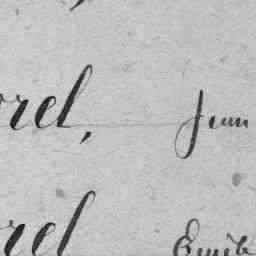 orel, Jean
rel Emile